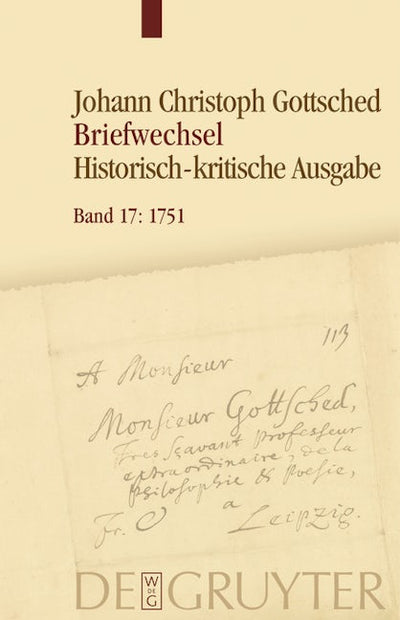 Johann Christoph Gottsched
Briefwechsel
Historisch-kritische Ausgabe
Band 17: 1751
113
A Monsieur
Monsieur Gottsched,
Tres Sçavant Professeur
extraordinaire, de la
Philosophie & Poesie,
Fr.
a
Leipzig.
DE GRUYTER
W
DE
G